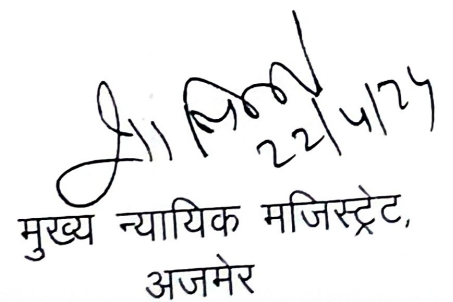 22/4/24
मुख्य न्यायिक मजिस्ट्रेट,
अजमेर